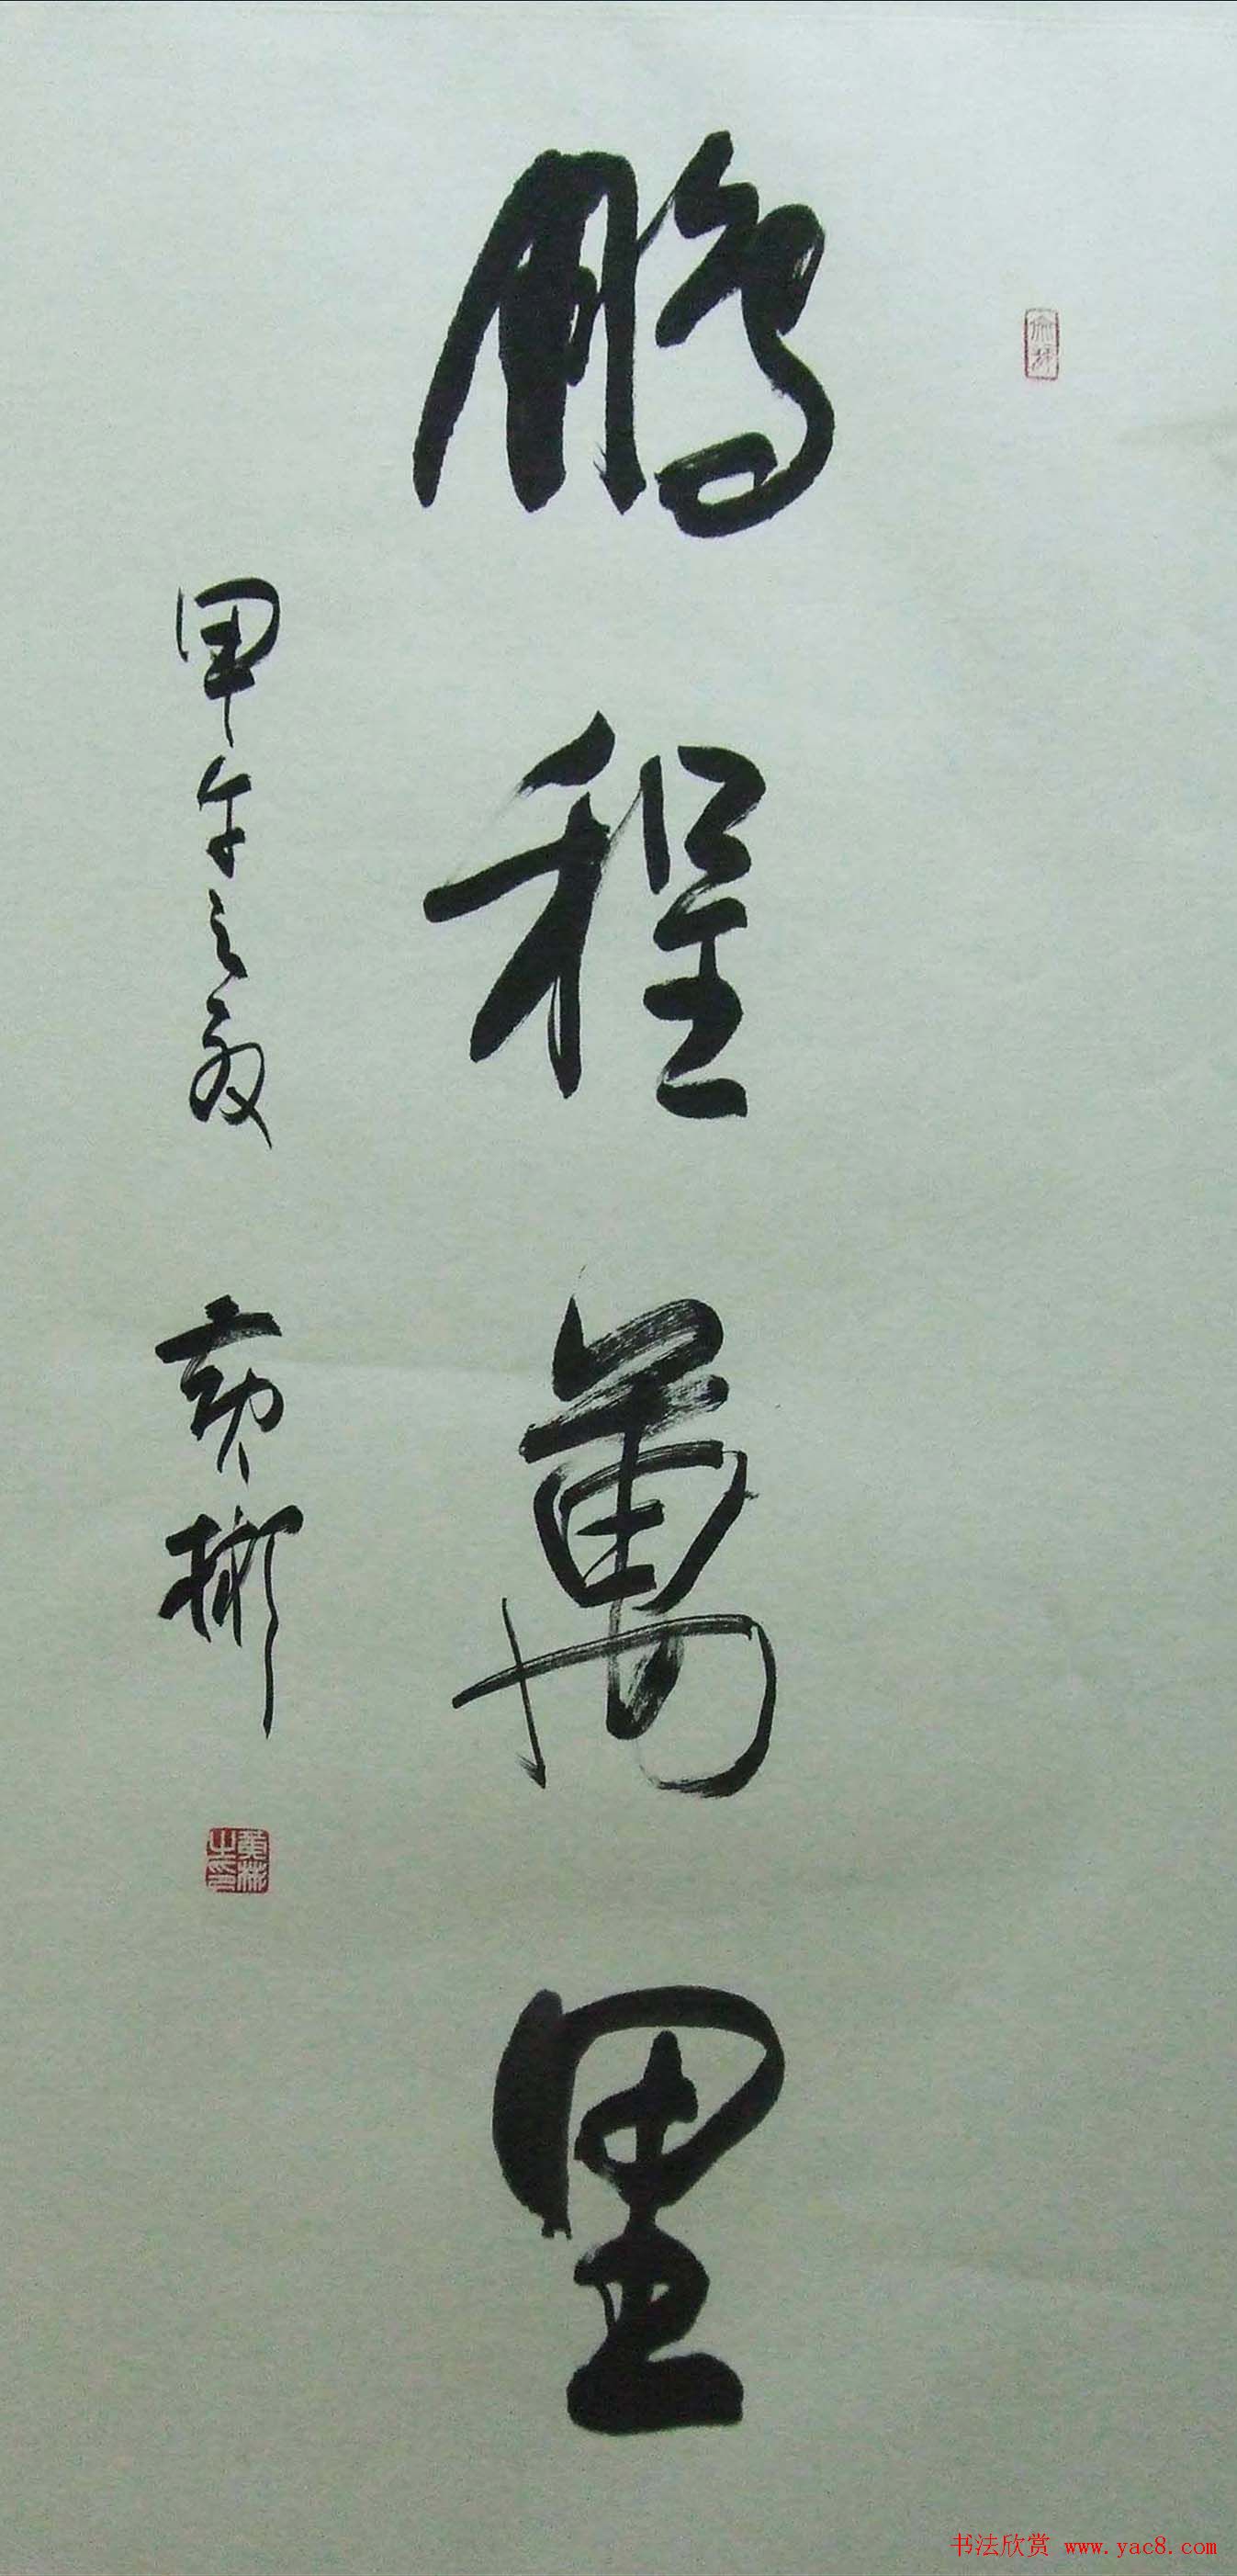 鵬程萬里
甲午之夏 黄彬
黄彬之印
书法欣赏 www.yac8.com